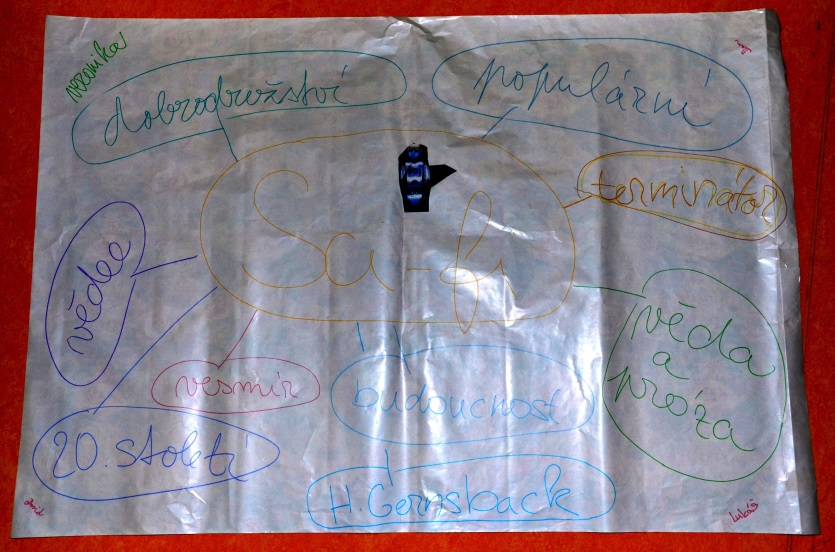 veronika
dobrodružství
populární
Sci-fi
terminátor
vědec
věda
a
próza
vesmír
budoucnost
20. století
H. Gernsback
david
Lukáš